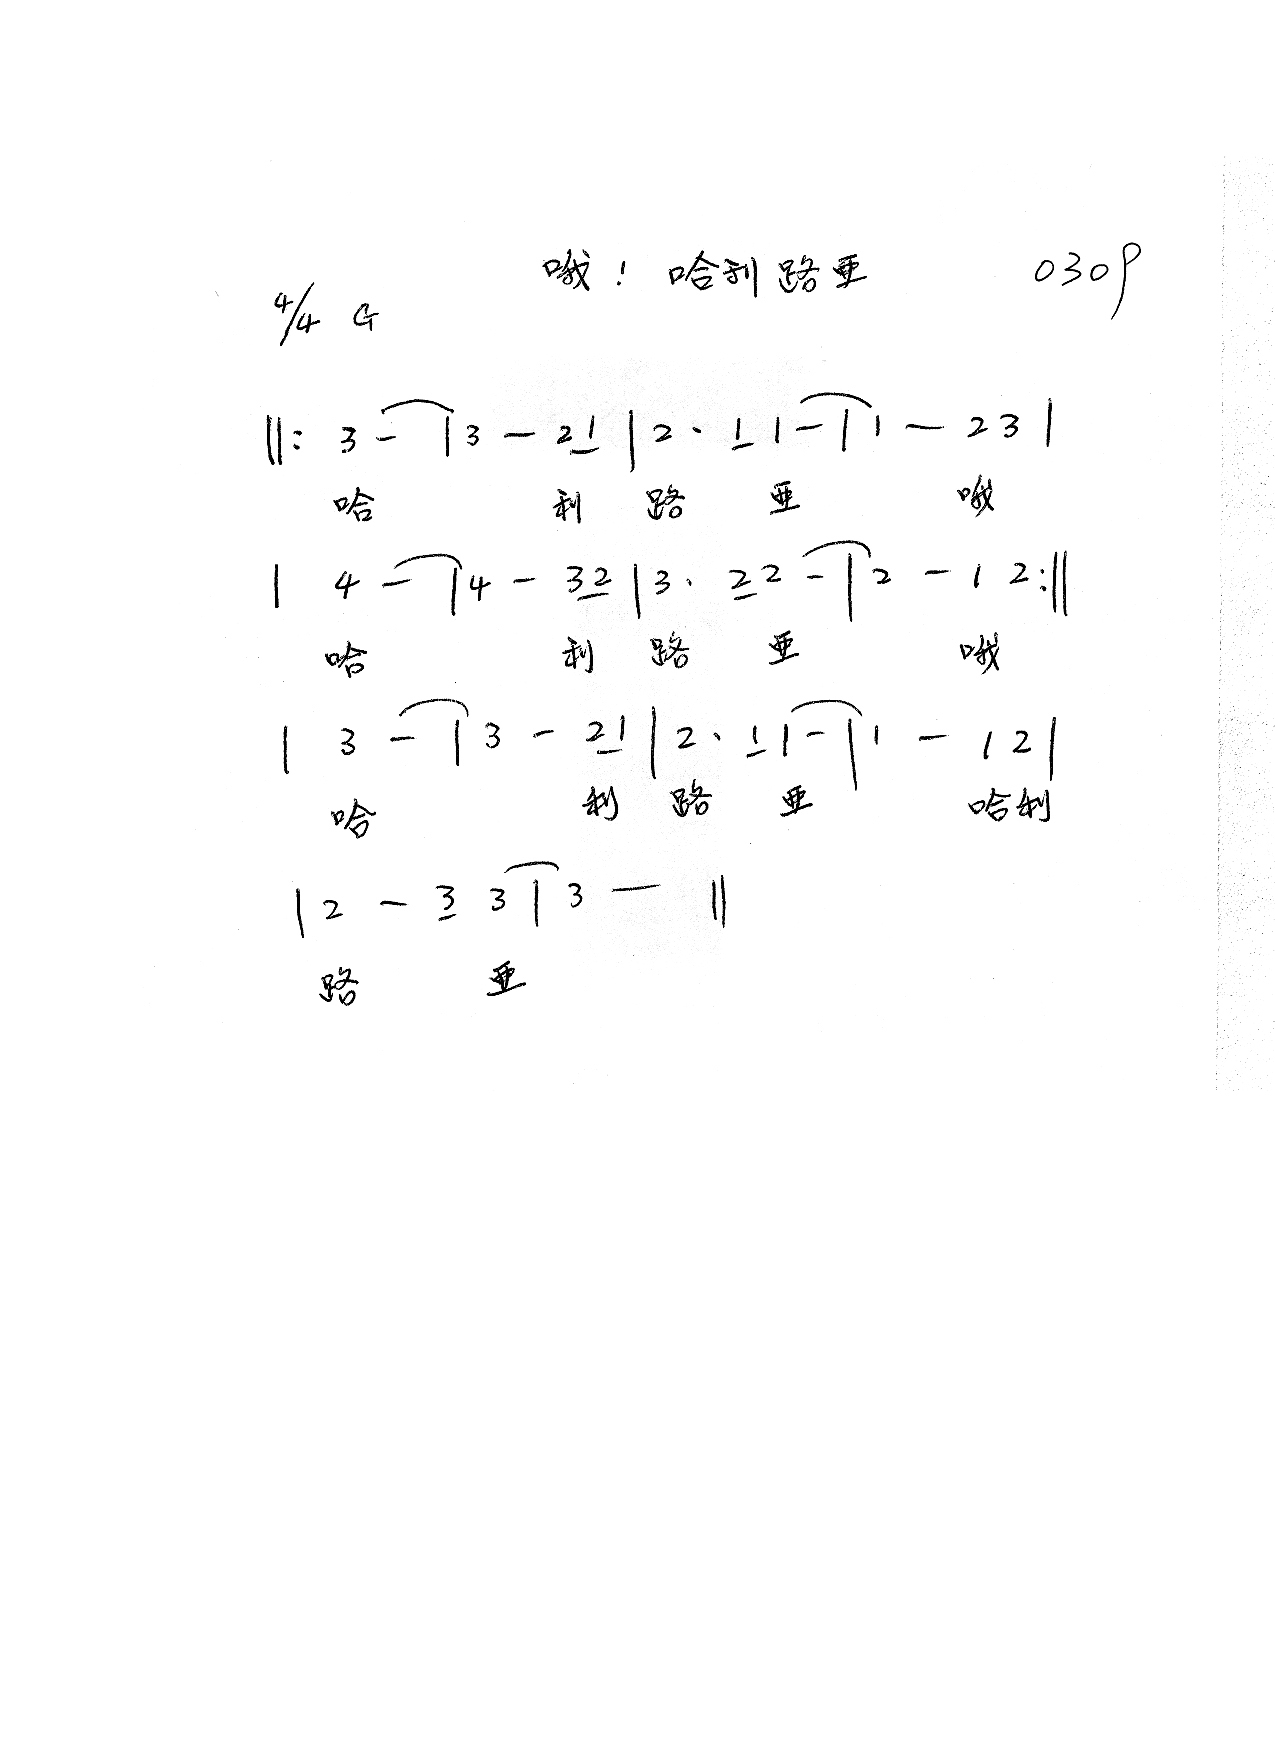 哦！哈利路亚 0309
4/4 G
||: 3 - | 3 - 2 1 | 2 · 1 1 - | 1 - 2 3 |
哈 利 路 亚 哦
| 4 - | 4 - 3 2 | 3 · 2 2 - | 2 - 1 2 :||
哈 利 路 亚 哦
| 3 - | 3 - 2 1 | 2 · 1 1 - | 1 - 1 2 |
哈 利 路 亚 哈利
| 2 - 3 3 | 3 - ||
路 亚